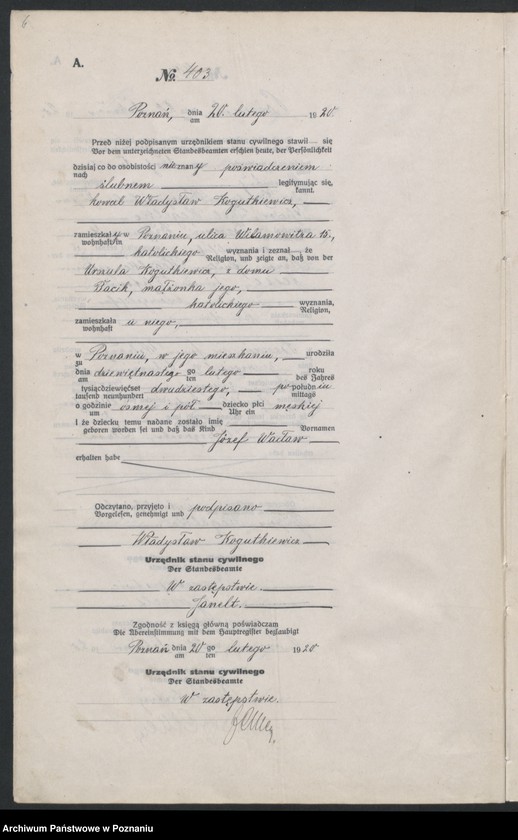 6
A.
№ 403
Poznań, dnia 20. lutego 1920
am
Przed niżej podpisanym urzędnikiem stanu cywilnego stawił się
Vor dem unterzeichneten Standesbeamten erschien heute, der Persönlichkeit
dzisiaj co do osobistości nie znany poświadczeniem
nach
ślubnem legitymując się,
kannt.
kowal Władysław Kogutkiewicz,
zamieszkały w Poznaniu, ulica 15.,
wohnhaft in
katolickiego wyznania i zeznał że
Religion, und zeigte an, daß von der
Urszula Kogutkiewicz, z domu
Tacik, małżonka jego,
katolickiego wyznania,
Religion,
zamieszkała u niego,
wohnhaft
w Poznaniu, w jego mieszkaniu, urodziła
zu
dnia dziewiętnastego go lutego roku
am ten des Jahres
tysiącdziewięćset dwudziestego, po południu
tausend neunhundert mittags
o godzinie ósmej i pół dziecko płci męskiej
um Uhr ein
I że dziecku temu nadane zostało imię
geboren worden sei und daß das Kind Vornamen
Józef Wacław
erhalten habe
Odczytano, przyjęto i podpisano
Vorgelesen, genehmigt und
Władysław Kogutkiewicz
Urzędnik stanu cywilnego
Der Standesbeamte
W zastępstwie.
Janelt.
Zgodność z księgą główną poświadczam
Die Übereinstimmung mit dem Hauptregister beglaubigt
Poznań dnia 20 go lutego 1920
am ten
Urzędnik stanu cywilnego
Der Standesbeamte
W zastępstwie.
Archiwum Państwowe w Poznaniu